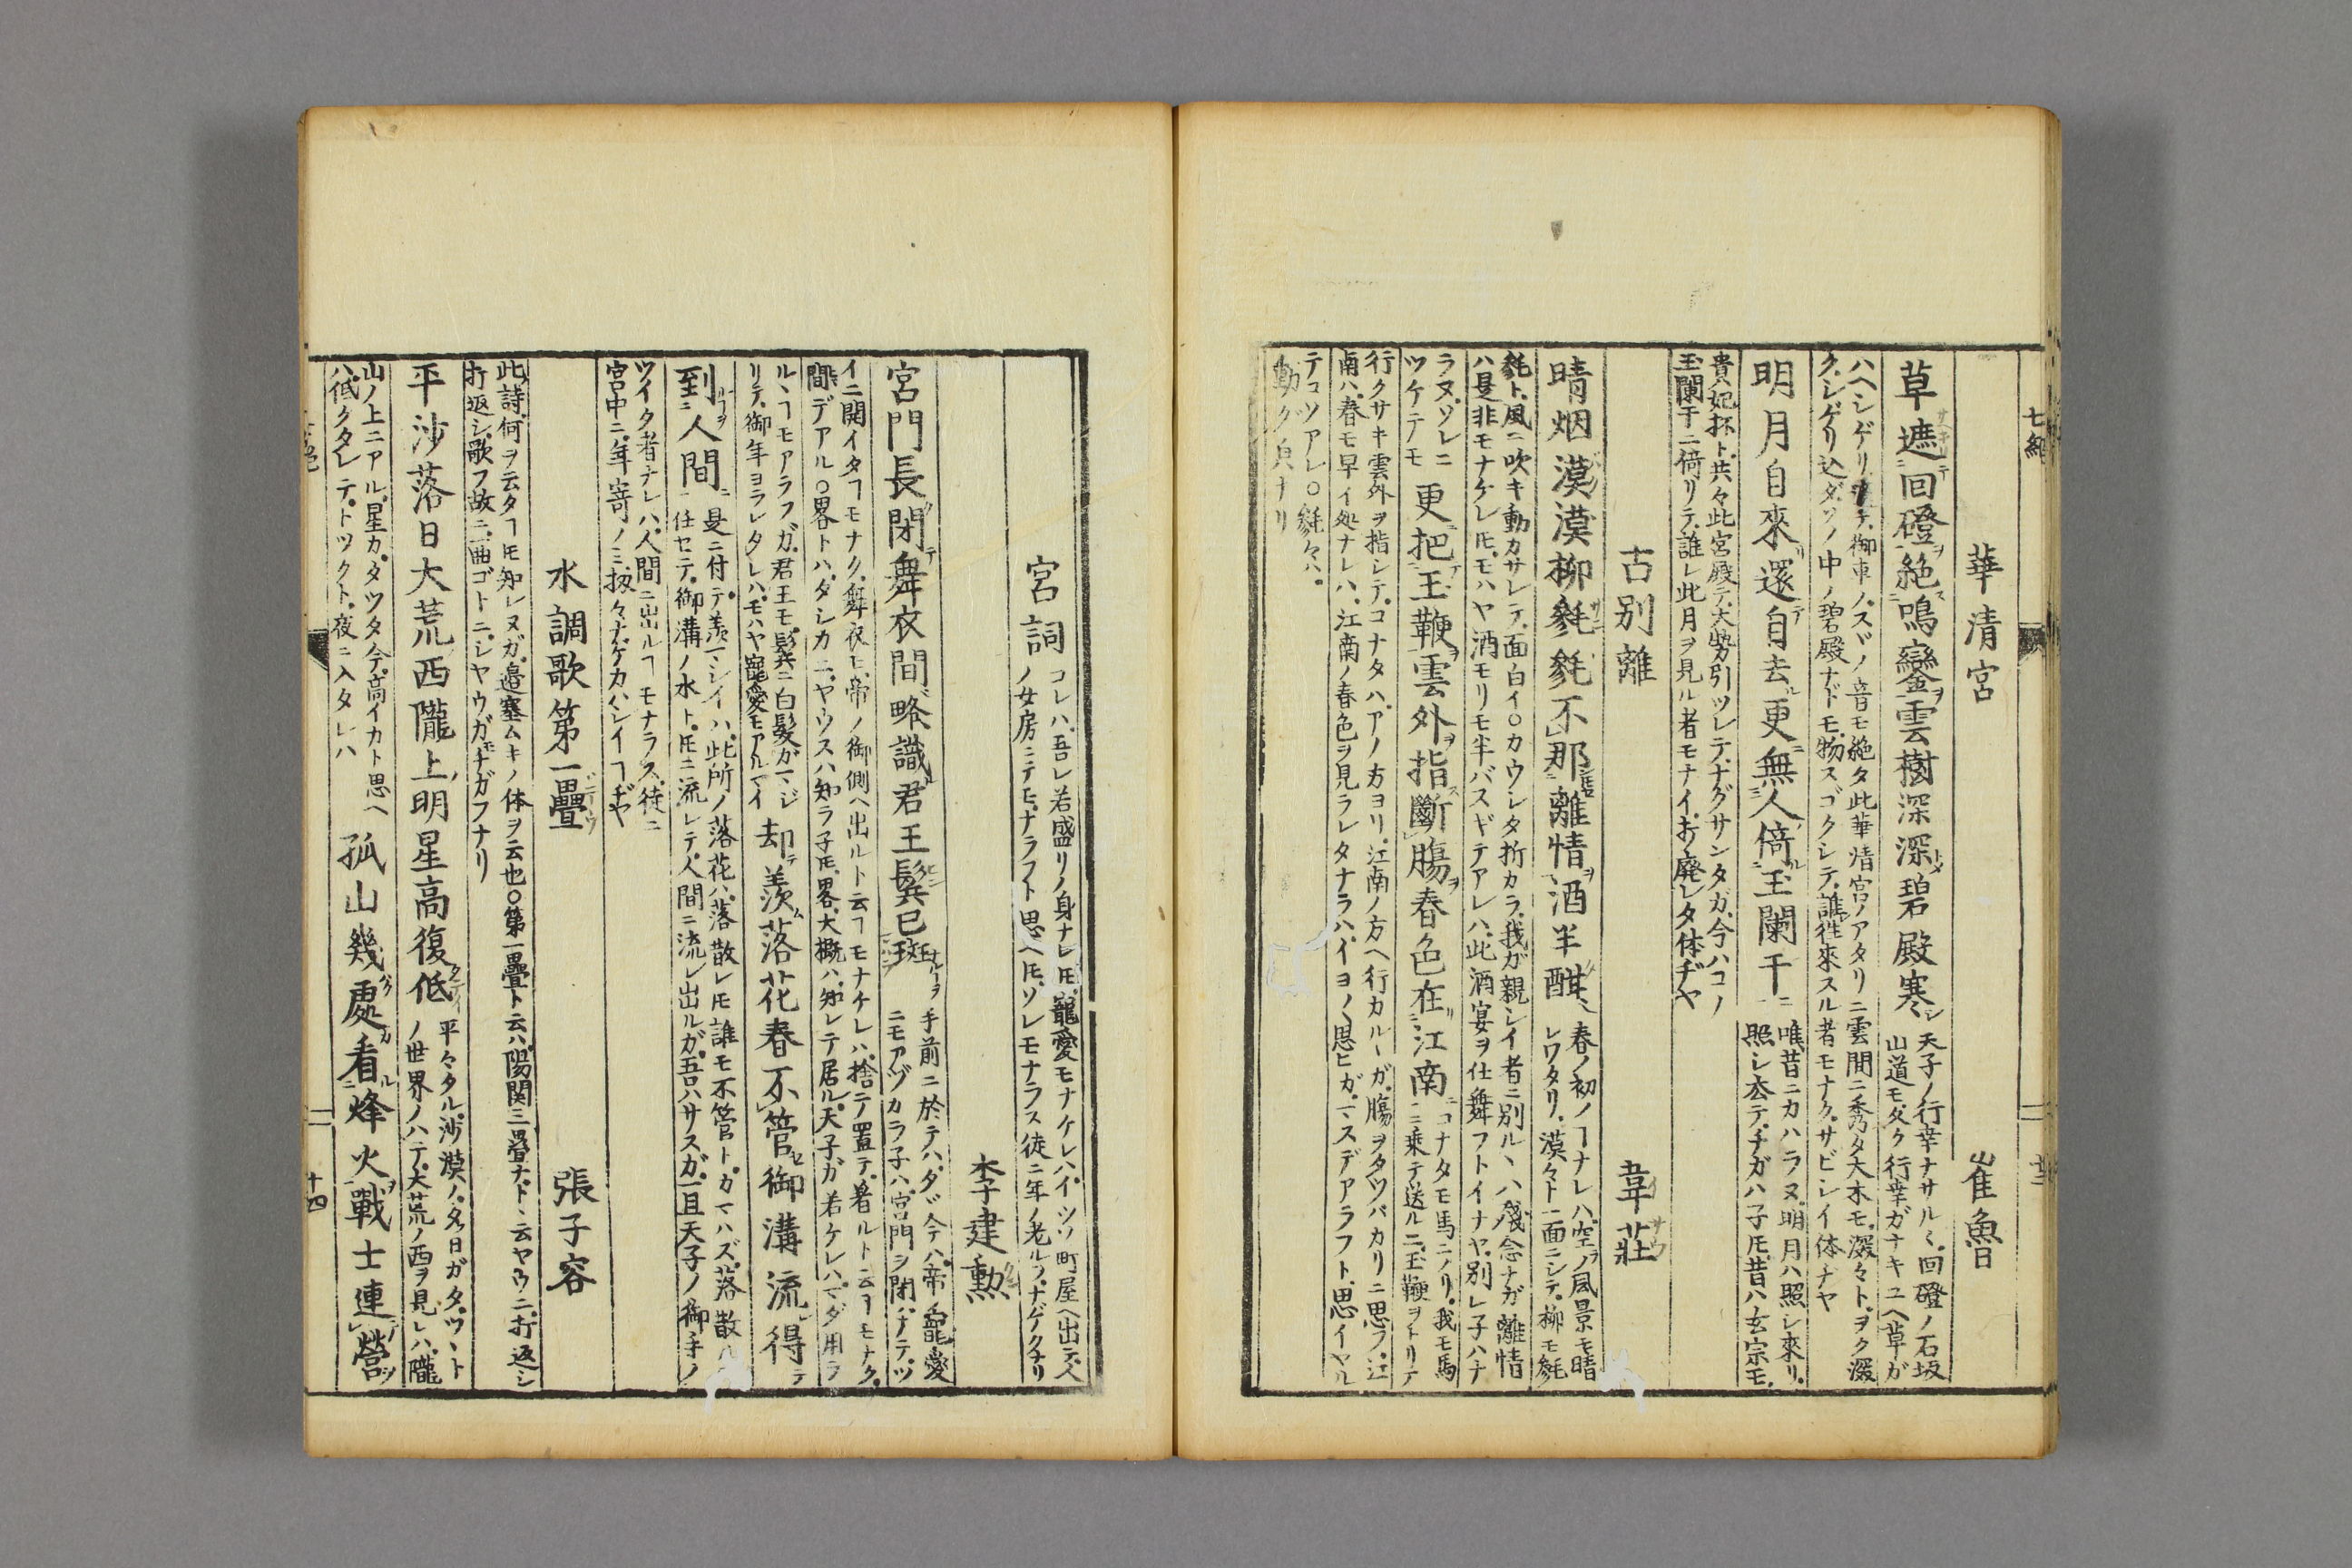 七絶
華清宮 崔魯
草遮回磴絶鳴鑾雲樹深深碧殿寒
天子ノ行幸ナサルヽ回磴ノ石坂
山道モ久ク行幸ガナキユヘ草ガ
ハヘシゲリ
御車ノスヾノ音モ絶タ此華清宮ノアタリニ雲間ニ秀タ大木モ深々トヲク深
クシゲリ込ダソノ中ノ碧殿ナドモ物スゴクシテ誰往來スル者モナクサビシイ体ヂヤ
明月自來還自去更無人倚玉闌干
唯昔ニカハラヌ明月ハ照シ來リ
照シ去テチガハ子𪜈昔ハ玄宗モ
貴妃抔ト共々此宮殿テ大勢引ツレテナグサンタガ今ハコノ
玉闌干ニ倚リテ誰レ此月ヲ見ル者モナイ打廃レタ体ヂヤ
古別離 韋莊
晴烟漠漠柳毿毿不那離情酒半酣
春ノ初ノヿナレハ空ノ風景モ晴
レワタリ漠々ト一面ニシテ柳モ毿
毿ト風ニ吹キ動カサレテ面白イ○カウシタ折カラ我ガ親シイ者ニ別ルヽハ殘念ナガ離情
ハ是非モナケレ𪜈モハヤ酒モリモ半バスギテアレハ此酒宴ヲ仕舞フトイナヤ別レ子ハナ
ラヌソレニ
ツケテモ
更把玉鞭雲外指斷膓春色在江南
コナタモ馬ニノリ我モ馬
ニ乘テ送ルニ玉鞭ヲトリテ
行クサキ雲外ヲ指シテコナタハアノ方ヨリ江南ノ方ヘ行カルヽガ膓ヲタツバカリニ思フ江
南ハ春モ早イ処ナレハ江南ノ春色ヲ見ラレタナラハイヨ〳〵思ヒガマスデアラフト思イヤル
テコソアレ○毿々ハ
動グ皃ナリ
宮詞
コレハ吾レ若盛リノ身ナレ𪜈寵愛モナケレハイツソ町屋ヘ出テ人
ノ女房ニテモナラフト思ヘ𪜈ソレモナラス徒ニ年ノ老ルヲナゲクナリ
李建勲
宮門長閉舞衣間略識君王鬂已斑
手前ニ於テハタヾ今ハ帝ノ寵愛
ニモアヅカラ子ハ宮門ヲ閉ハナテツ
イニ開イタヿモナク舞衣モ帝ノ御側ヘ出ルト云ヿモナケレハ捨テ置テ着ルト云ヿモナク
間デアル○畧トハタシカニヤウスハ知ラ子𪜈畧大概ハ知レテ居ル天子ガ若ケレハマダ用ラ
ルヽヿモアラフガ君王モ鬂ニ白髮ガマジ
リテ御年ヨラレタレハモハヤ寵愛モアルマイ
却羨落花春不管御溝流得
到人間
是ニ付テ羨マシイハ此所ノ落花ハ落散レ𪜈誰モ不管トカマハズ落散ル
仕セテ御溝ノ水ト𪜈ニ流レテ人間ニ流レ出ルガ吾ハサスガ一且天子ノ御手ノ
ツイタ者ナレハ人間ニ出ルヿモナラス徒ニ
宮中ニ年寄ノミ扨々ナゲカハシイヿヂヤ
水調歌第一疊 張子容
此詩何ヲ云タヿ𪜈知レヌガ邉塞ムキノ体ヲ云也○第一疊ト云ハ陽関三疊ナドヽ云ヤウニ打返シ
打返シ歌フ故ニ一曲ゴトニシヤウガモナガフナリ
平沙落日大荒西隴上明星高復低
平々タル沙漠ノ夕日ガタツヽト
ノ世界ノハテ大荒ノ西ヲ見レハ隴
山ノ上ニアル星カタツタ今高イカト思ヘ
ハ低クタレテトツクト夜ニ入タレハ
孤山幾處看烽火戰士連營
十四